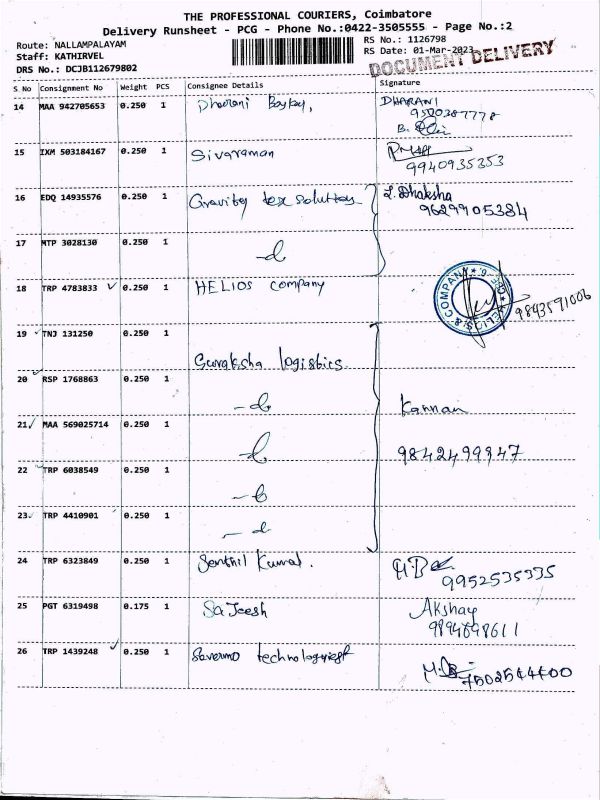 THE PROFESSIONAL COURIERS, Coimbatore
Delivery Runsheet - PCG - Phone No.:0422-3505555 - Page No.:2
Route: NALLAMPALAYAM
Staff: KATHIRVEL
DRS No.: DCJB112679802
RS No.: 1126798
RS Date: 01-Mar-2023
DOCUMENT DELIVERY
S No Consignment No Weight PCS Consignee Details Signature
14 MAA 942705653 0.250 1 Dharani DHARANI
15 IXM 503184167 0.250 1 Sivaraman
9940935353
16 EDQ 14935576 0.250 1 Gravity tex solutions L. Dhaksha
9629905384
17 MTP 3028130 0.250 1
18 TRP 4783833 ✓ 0.250 1 HELIOS company
HELIOS & COMPANY
9843591006
19 ✓ TNJ 131250 0.250 1
Suraksha logistics
20 ✓ RSP 1768863 0.250 1
Kannan
21 ✓ MAA 569025714 0.250 1
9842499947
22 ✓ TRP 6038549 0.250 1
23 ✓ TRP 4410901 0.250 1
24 TRP 6323849 0.250 1 Senthil Kumar.
9952535335
25 PGT 6319498 0.175 1 Sajeesh Akshay
9894698611
26 TRP 1439248 ✓ 0.250 1
7502544400